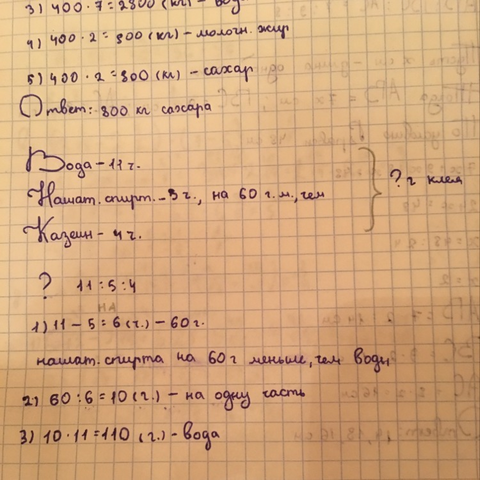 3) 400 · 7 = 2800 (кг) – вода
4) 400 · 2 = 800 (кг) – молочн. жир
5) 400 · 2 = 800 (кг) – сахар
Ответ: 800 кг сахара
Вода – 11 ч.
Нашат. спирт. – 5 ч., на 60 г. м., чем
? г клея
Казеин – 4 ч.
? 11 : 5 : 4
НА
1) 11 – 5 = 6 (ч.) – 60 г.
нашат. спирта на 60 г меньше, чем воды
2) 60 : 6 = 10 (г.) – на одну часть
3) 10 · 11 = 110 (г.) – вода